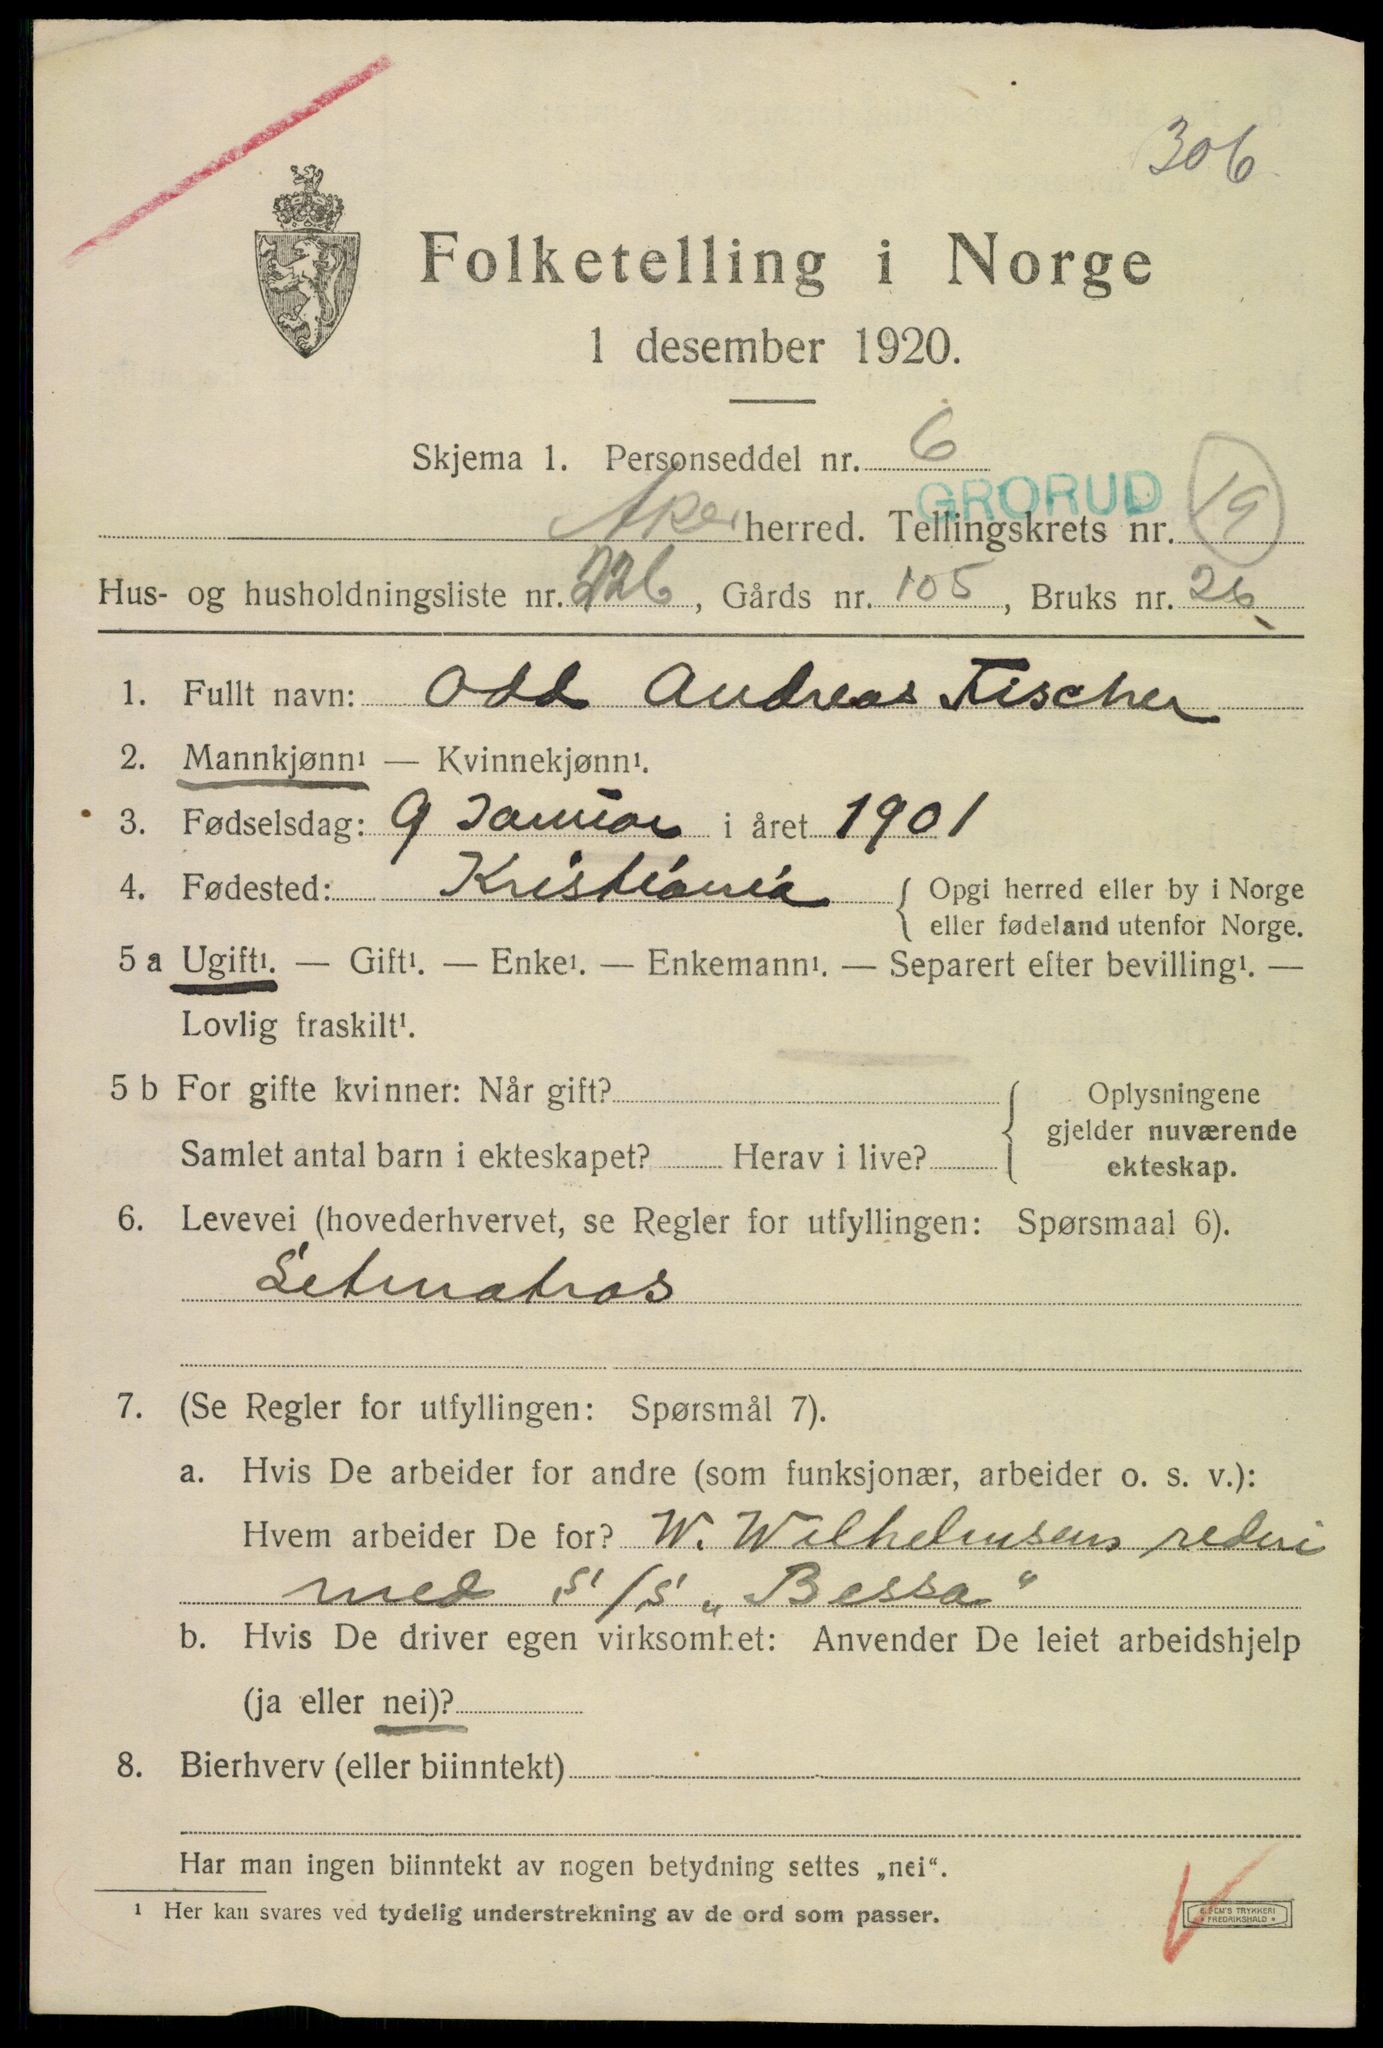 306
Folketelling i Norge
1 desember 1920.
Skjema 1. Personseddel nr. 6
GRORUD
Aker herred. Tellingskrets nr. 19
Hus- og husholdningsliste nr. 226, Gårds nr. 105, Bruks nr. 26
1. Fullt navn: Odd Andreas Fischer
2. Mannkjønn¹ — Kvinnekjønn¹.
3. Fødselsdag: 9 Januar i året 1901
4. Fødested: Kristiania { Opgi herred eller by i Norge
eller fødeland utenfor Norge.
5 a Ugift¹. — Gift¹. — Enke¹. — Enkemann¹. — Separert efter bevilling¹. —
Lovlig fraskilt¹.
5 b For gifte kvinner: Når gift? { Oplysningene
gjelder nuværende
Samlet antal barn i ekteskapet? Herav i live? ekteskap.
6. Levevei (hovederhvervet, se Regler for utfyllingen: Spørsmaal 6).
Letmatros
7. (Se Regler for utfyllingen: Spørsmål 7).
a. Hvis De arbeider for andre (som funksjonær, arbeider o. s. v.):
Hvem arbeider De for? W. Wilhelmsens rederi
med S/S „Bessa"
b. Hvis De driver egen virksomhet: Anvender De leiet arbeidshjelp
(ja eller nei)?
8. Bierhverv (eller biinntekt)
Har man ingen biinntekt av nogen betydning settes „nei“.
¹ Her kan svares ved tydelig understrekning av de ord som passer.
E. SEM'S TRYKKERI
FREDRIKSHALD